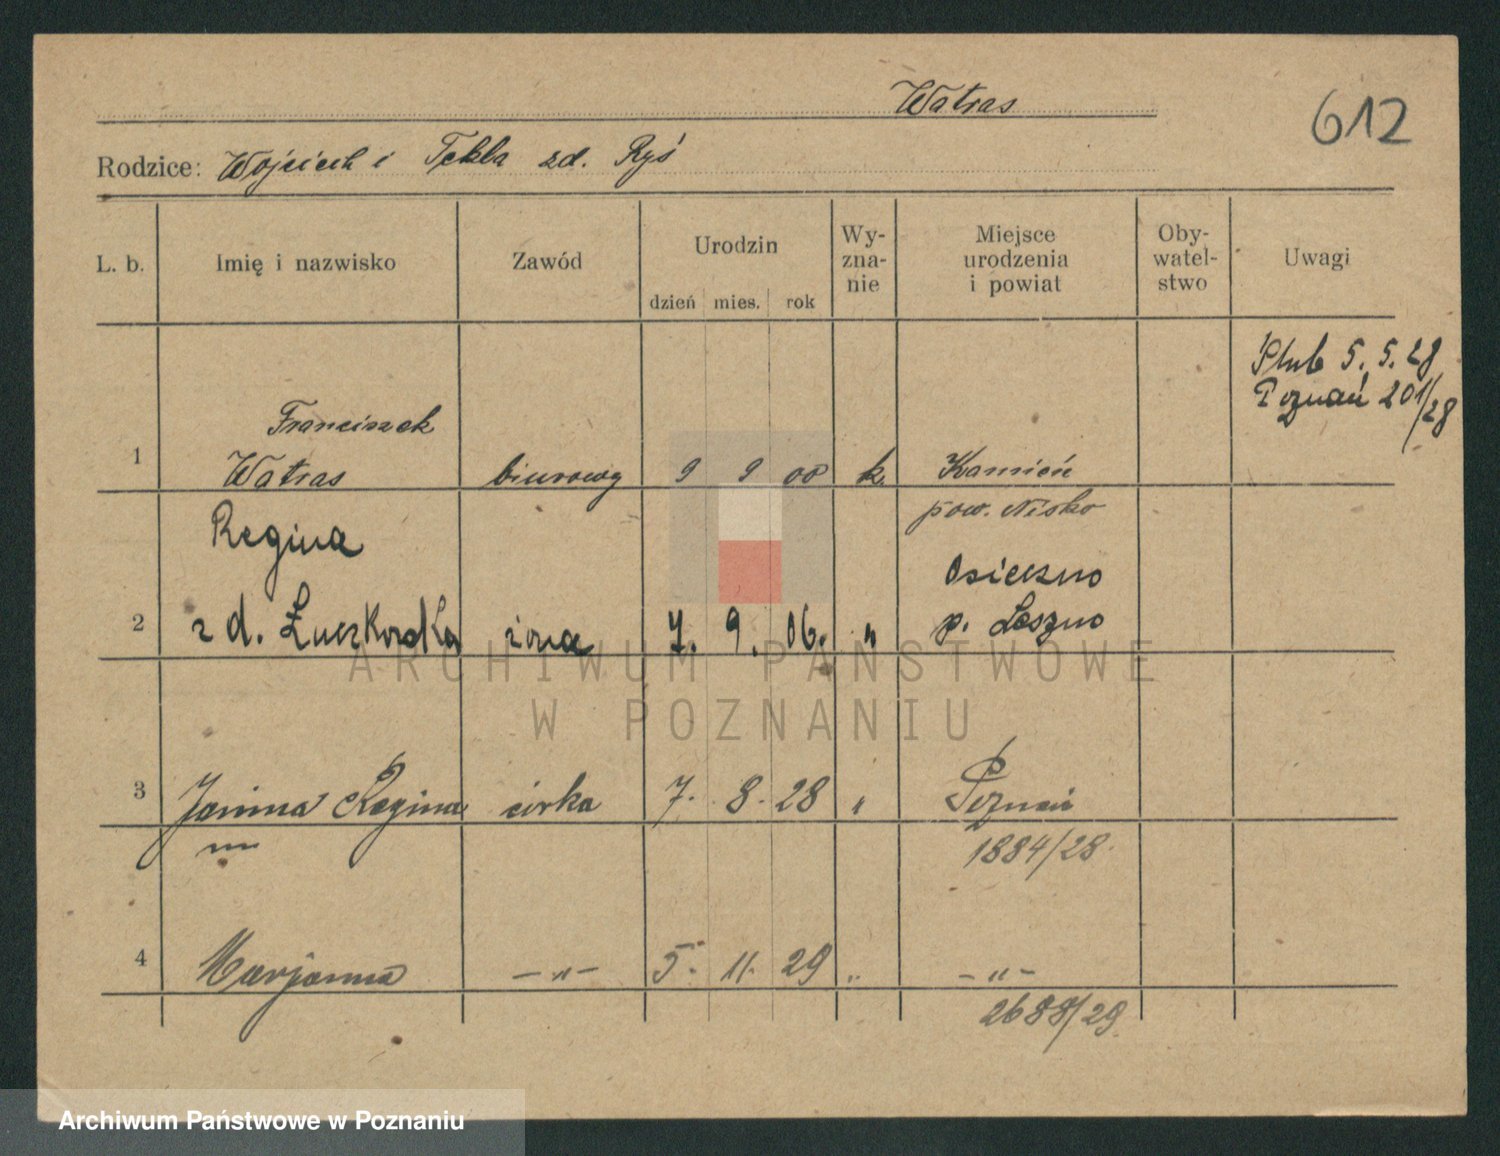 Watras
612
Rodzice: Wojciech i Tekla zd. Ryś
L. b. Imię i nazwisko Zawód Urodzin dzień mies. rok Wy-zna-nie Miejsce urodzenia i powiat Oby-watel-stwo Uwagi
Ślub 5. 5. 28
Poznań 201/28
Franciszek
1 Watras biurowy 9 9 00 k. Kamień
pow. Nisko
Regina
Osieczno
2 z d. Łuczkowska żona 7. 9. 06. " p. Leszno
3 Janina Regina córka 7. 8. 28 " Poznań
1884/28.
4 Marjanna — " — 5. 11. 29 " — " —
2688/29
ARCHIWUM PAŃSTWOWE
W POZNANIU
Archiwum Państwowe w Poznaniu